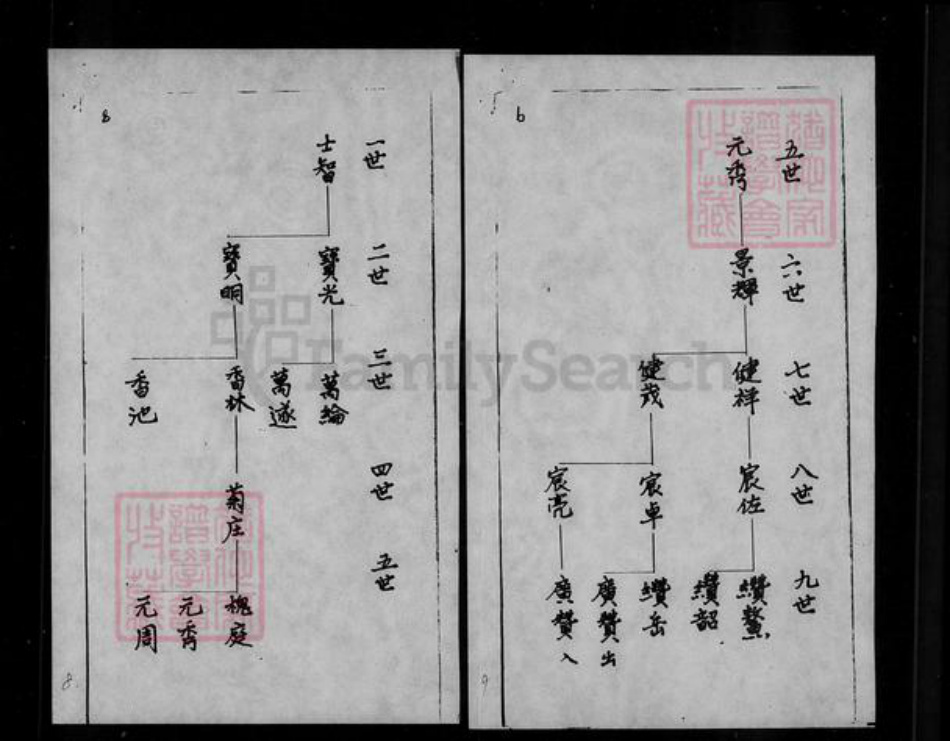 8
一世
士智
二世
寶光
寶明
三世
萬綸
萬遂
香林
香池
四世
菊庄
五世
槐庭
元秀
元周
8
FamilySearch
6
五世
元秀
六世
景輝
七世
健祥
健茂
八世
宸佐
宸卓
宸亮
九世
纘鰲
纘韶
纘岳
廣贊出
廣贊入
9
譜學會
收藏